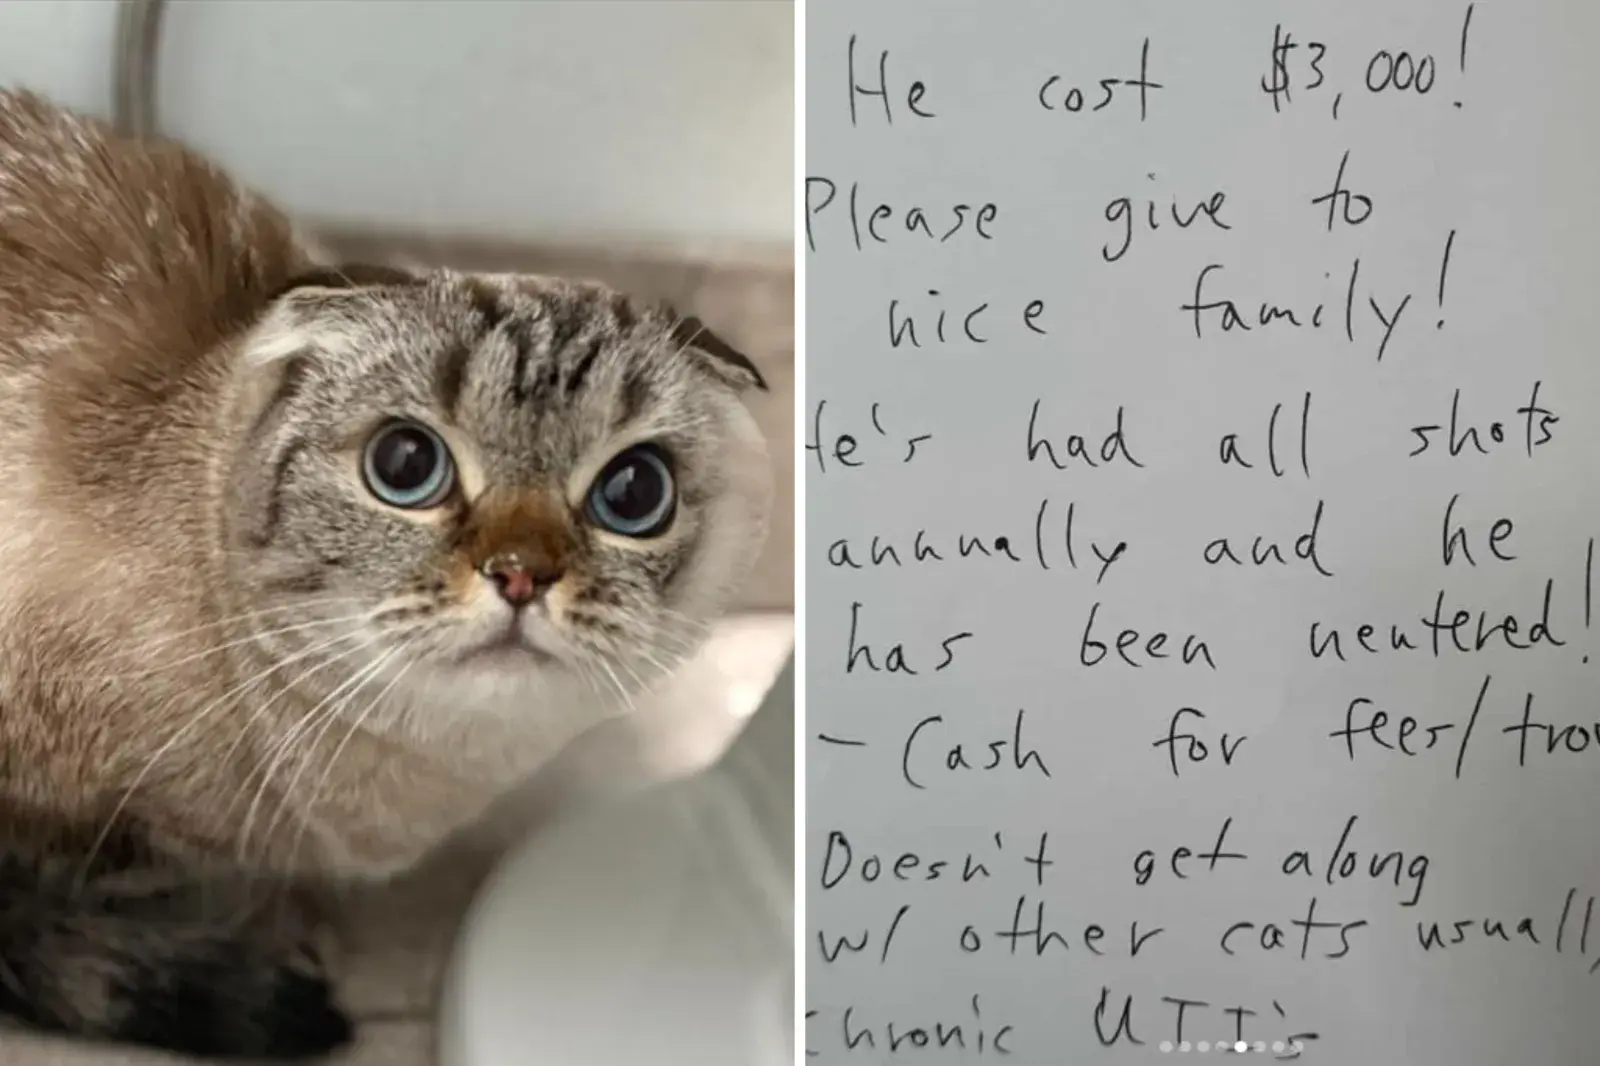 He cost $3,000!
Please give to
nice family!
He's had all shots
annually and he
has been neutered!
- Cash for fees/
Doesn't get along
w/ other cats usually
Chronic UTI's